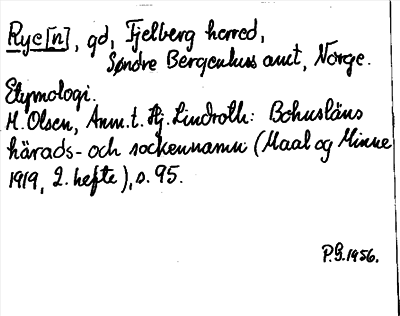 Rye[n], gd, Fjelberg herred,
Søndre Bergenhus amt, Norge.
Etymologi.
M. Olsen, Anm. t. Hj. Lindroth: Bohusläns
härads- och sockennamn (Maal og Minne
1919, 2. hefte), s. 95.
P.G. 1956.